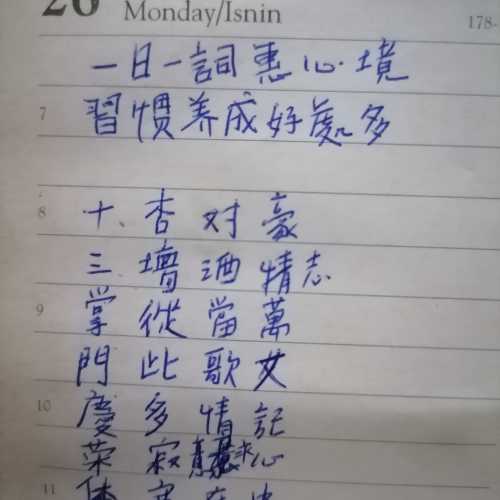 26 Monday/Isnin 178-
一日一詞惠心境
7 習慣养成好處多
8 十、杏对豪
三壇酒情志
9 掌從當萬
門此歌女
10 慶多情記
荣寂心
11